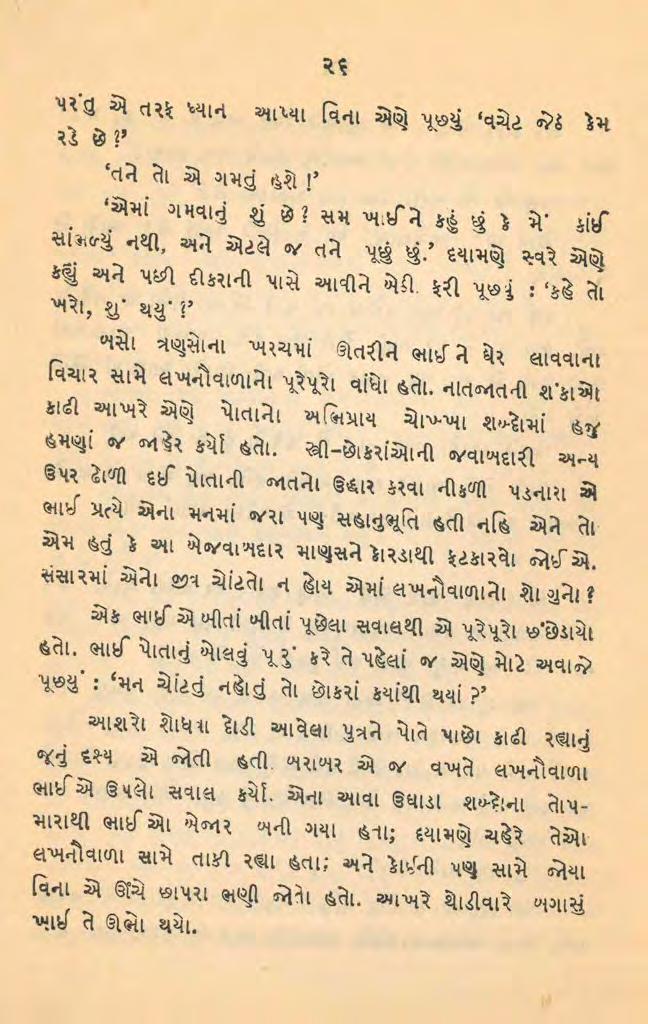 ૨૬
પરંતુ એ તરફ ધ્યાન આપ્યા વિના એણે પૂછયું ‘વચેટ જેઠ કેમ
રડે છે ?’
‘તને તો એ ગમતું હશે !’
‘એમાં ગમવાનું શું છે? સમ ખાઈને કહું છું કે મેં કાંઈ
સાંભળ્યું નથી, અને એટલે જ તને પૂછું છું.’ દયામણે સ્વરે એણે
કહ્યું અને પછી દીકરાની પાસે આવીને બેડી. ફરી પૂછયું : ‘કહે તો
ખરો, શું થયું ?’
બસો ત્રણસોના ખરચમાં ઊતરીને ભાઈને ઘેર લાવવાના
વિચાર સામે લખનૌવાળાનો પૂરેપૂરો વાંધો હતો. નાતજાતની શંકાઓ
કાઢી આખરે એણે પોતાનો અભિપ્રાય ચોખ્ખા શબ્દોમાં હજુ
હમણાં જ જાહેર કર્યો હતો. સ્ત્રી-છોકરાંઓની જવાબદારી અન્ય
ઉપર ઢોળી દઈ પોતાની જાતનો ઉદ્ધાર કરવા નીકળી પડનારા એ
ભાઈ પ્રત્યે એના મનમાં જરા પણ સહાનુભૂતિ હતી નહિ એને તો
એમ હતું કે આ બેજવાબદાર માણસને કોરડાથી ફટકારવો જોઈએ.
સંસારમાં એનો જીવ ચોંટતો ન હોય એમાં લખનૌવાળાનો શો ગુનો ?
એક ભાઈએ બીતાં બીતાં પૂછેલા સવાલથી એ પૂરેપૂરો છંછેડાયો
હતો. ભાઈ પોતાનું બોલવું પૂરું કરે તે પહેલાં જ એણે મોટે અવાજે
પૂછયું : ‘મન ચોંટતું નહોતું તો છોકરાં કયાંથી થયાં ?’
આશરો શોધવા દોડી આવેલા પુત્રને પોતે પાછો કાઢી રહ્યાનું
જૂનું દૃશ્ય એ જોતી હતી. બરાબર એ જ વખતે લખનૌવાળા
ભાઈએ ઉપલો સવાલ કર્યો. એના આવા ઉઘાડા શબ્દોના તોપ-
મારાથી ભાઈઓ બેજાર બની ગયા હતા; દયામણે ચહેરે તેઓ
લખનૌવાળા સામે તાકી રહ્યા હતા; અને કોઈની પણ સામે જોયા
વિના એ ઊંચે છાપરા ભણી જોતો હતો. આખરે થોડીવારે બગાસું
ખાઈ તે ઊભો થયો.